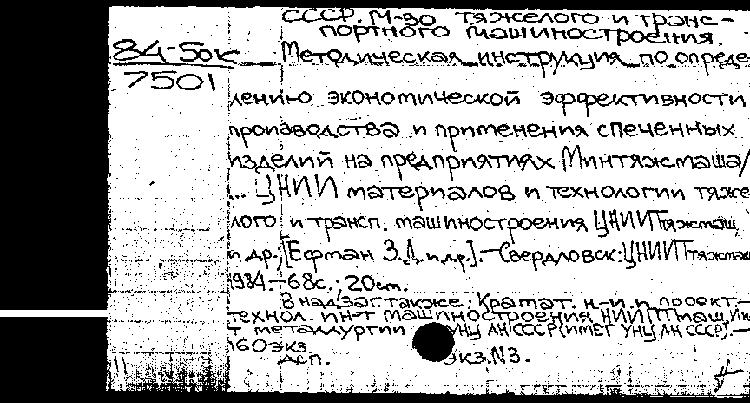 СССР. М-во тяжелого и транс-
портного машиностроения.
84-50к
7501
Методическая инструкция по опреде
лению экономической эффективности
производства и применения спеченных
изделий на предприятиях Минтяжмаша/
... ЦНИИ материалов и технологии тяже
лого и трансп. машиностроения ЦНИИТтяжмаш
и др.; [Ефман З.Д. и др.].-Свердловск: ЦНИИТтяжмаш
1984.-68с.; 20см.
В надзаг также: Крамат. н-и и проект.-
технол. ин-т машиностроения НИИПТмаш, Ин
т металлургии УНЦ АН СССР (ИМЕТ УНЦ АН СССР).-
160экз
Экз.N3.